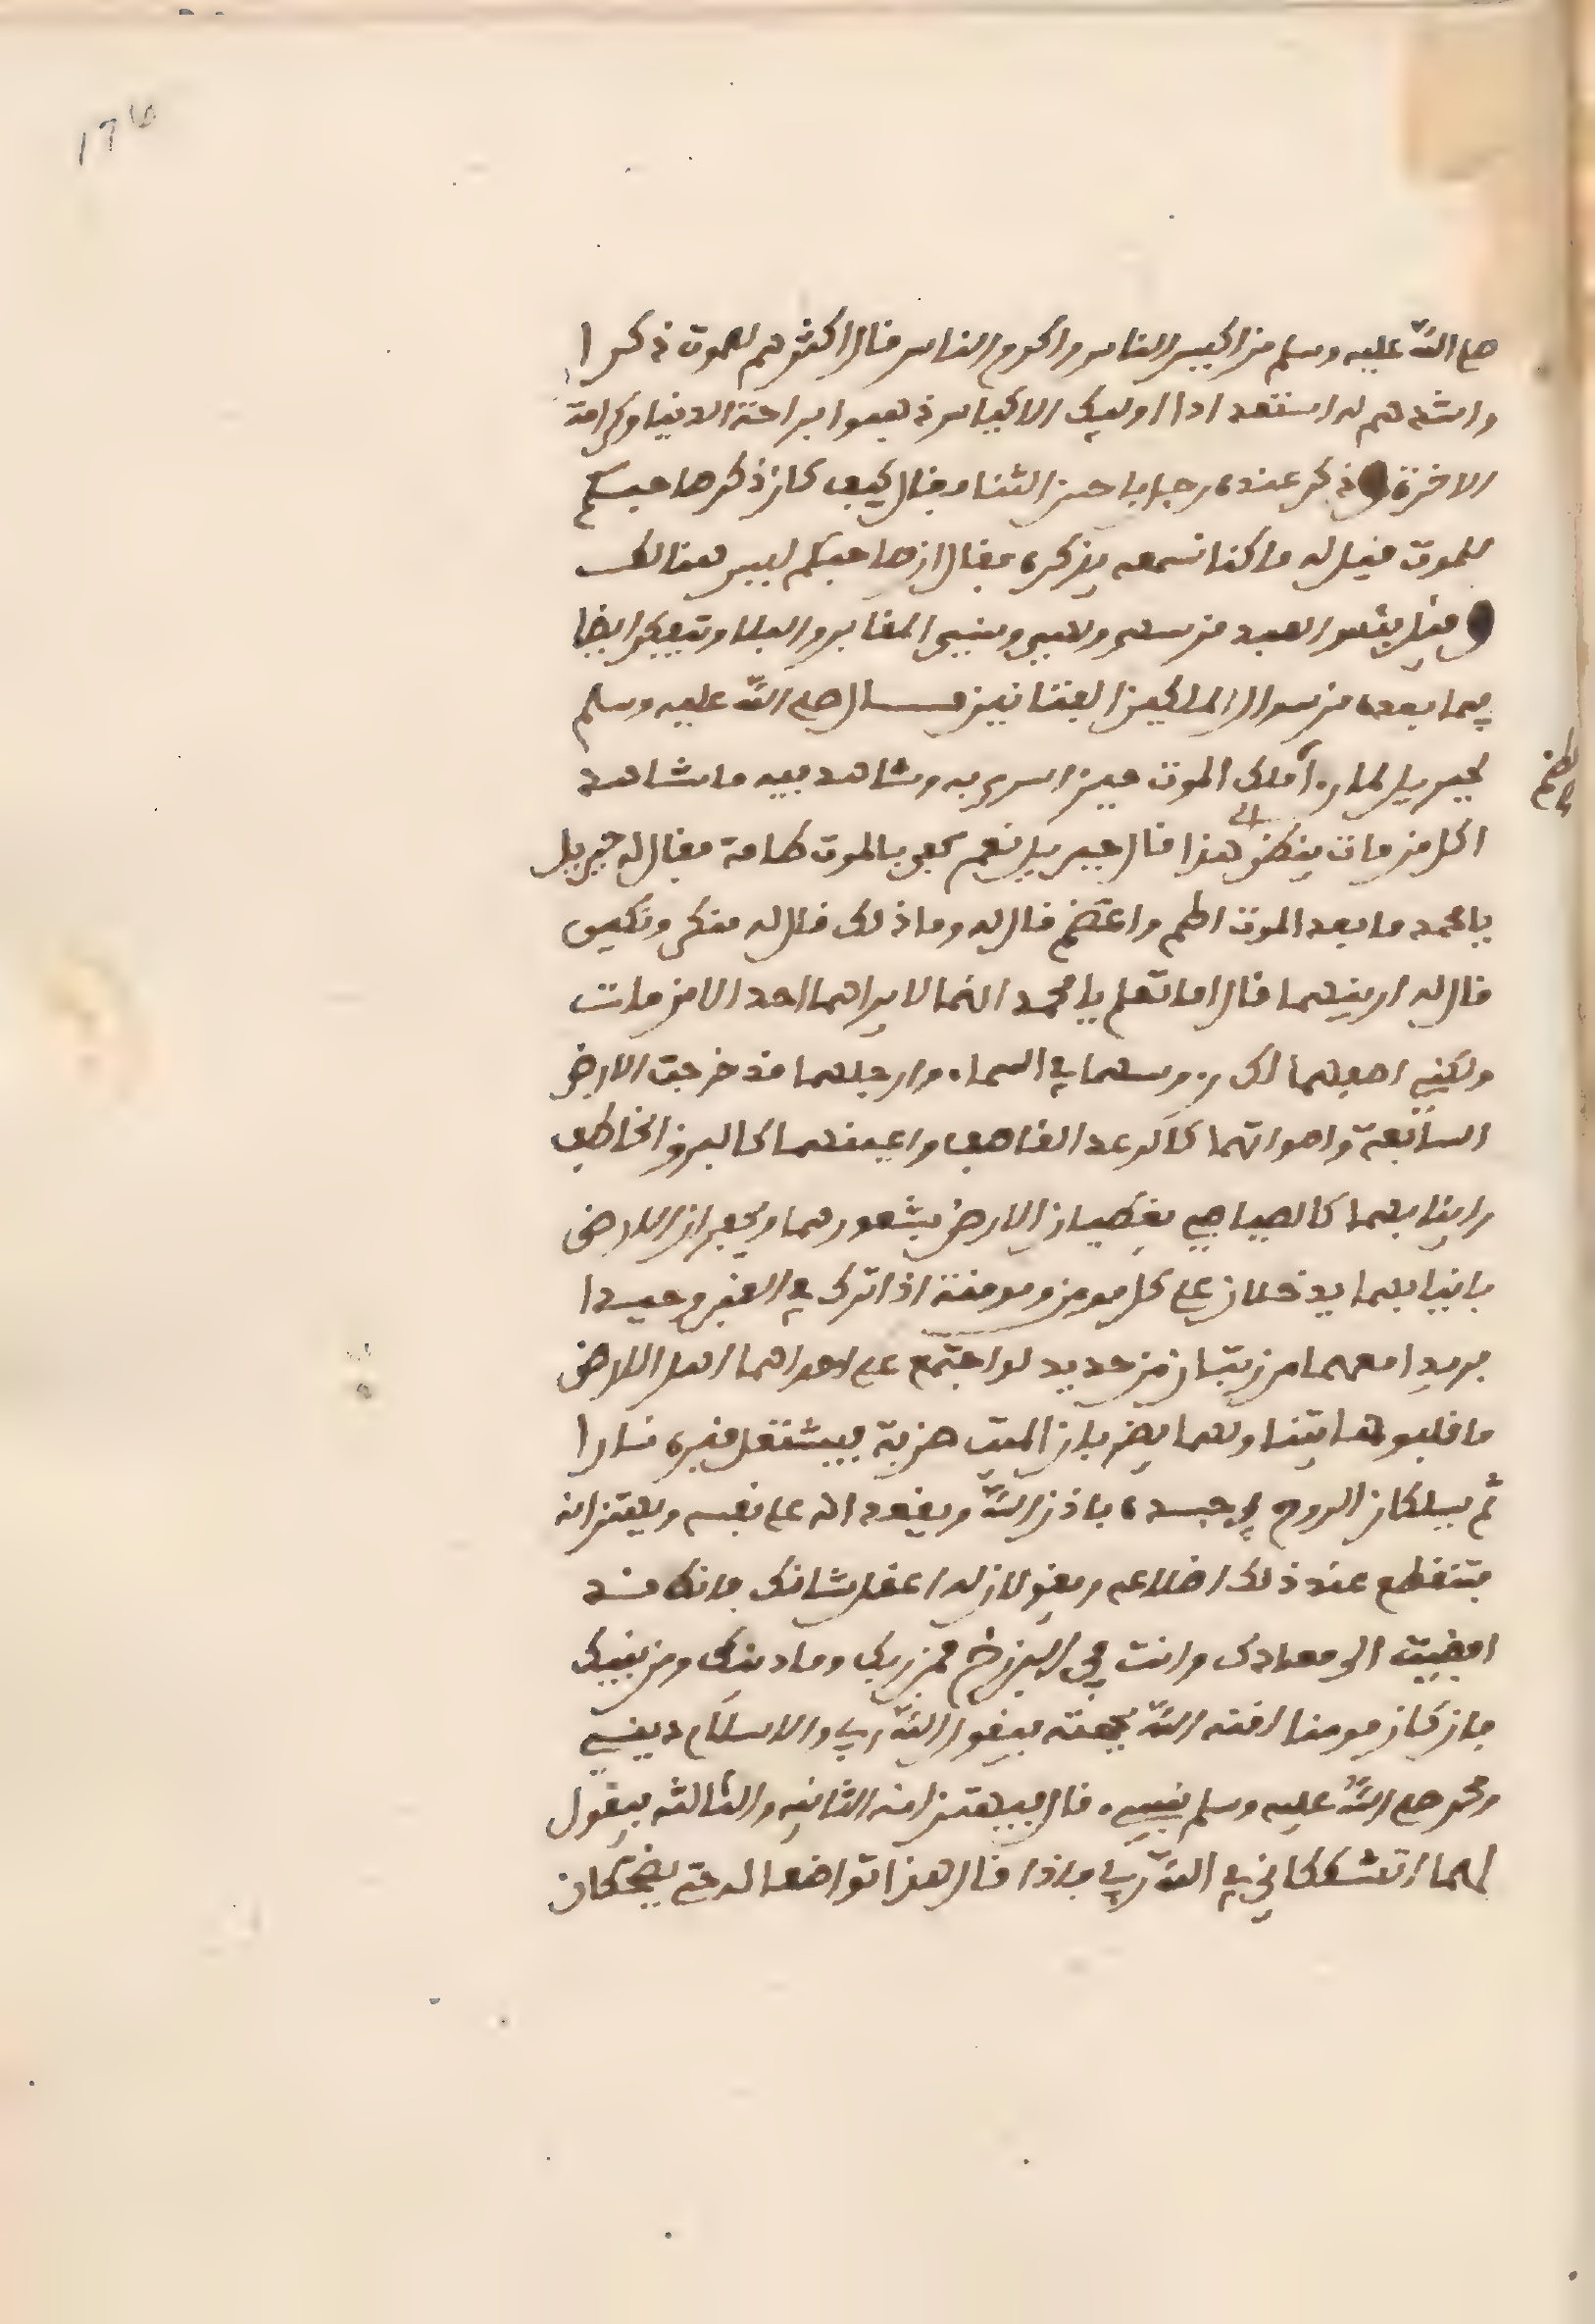 صلى الله عليه وسلم من اكيس الناس واكرم الناس فقال اكثرهم للموت ذكرا
واشدهم له استعدادا اوليك الاكياس ذهبوا براحة الدنيا وكرامة
الاخرة وذكر عنده رجل باحسن الثناء فقال كيف كان ذكر صاحبكم
للموت فيل له ما كنا نسمعه يذكره فقال ان صاحبكم ليس هنالك
وقيل بئس العبد من سهى ولهى ونسى المقابر والبلا وتفكر ايضا
فيما بعده من سوال الملكين الفتانين قال صلى الله عليه وسلم
لجبريل لما رءا ملك الموت حين اسرى به وشاهد فيه ما شاهد
اكل من مات ينظر الى هذا قال جبريل نعم كفى بالموت طامة فقال له جبريل
يا محمد ما بعد الموت اطم واعظم قال له وما ذلك قال له منكر ونكير
قال له ارينهما قال اما تعلم يا محمد انهما لا يراهما احد الا من مات
ولكني اصفهما لك رءوسهما في السماء وارجلهما قد خرجت الارض
السابعة واصواتهما كالرعد القاصف واعينهما كالبرق الخاطف
وانيابهما كالصياصي يغطيان الارض بشعورهما ويحفران الارض
بانيابهما يدخلان على كل مومن ومومنة اذا ترك في القبر وحيدا
فريدا معهما مرزبتان من حديد لو اجتمع على احداهما اهل الارض
ما قلبوها وهما يضربان الميت ضربة فيشتعل قبره نارا
ثم يسلكان الروح في جسده باذن الله ويقعدانه على نفسه ويهتزانه
فتنقطع عند ذلك اضلاعه ويقولان له اعقل شانك فانك قد
افضيت الى معادك وانت في البرزخ فمن ربك وما دينك ومن نبيك
فان كان مومنا لقنه الله حجته فيقول الله ربي والاسلام ديني
ومحمد صلى الله عليه وسلم نبيي. قال فيهتزانه الثانيه والثالثه فيقول
لهما اتشككاني في الله ربي فاذا قال هذا تواضعا له حتى يضحكان